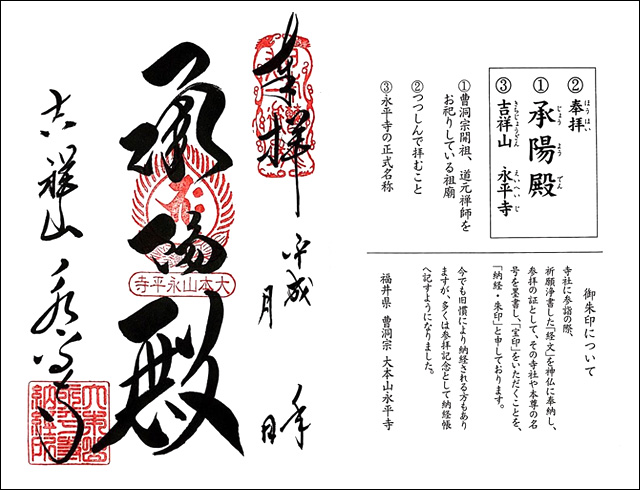 ②奉拝
ほうはい
①承陽殿
じょうようでん
③吉祥山 永平寺
きちじょうざん えいへいじ
①曹洞宗開祖、道元禅師を
お祀りしている祖廟
②つつしんで拝むこと
③永平寺の正式名称
御朱印について
寺社に参詣の際、
祈願浄書した「経文」を神仏に奉納し、
参拝の証として、その寺社や本尊の名
号を墨書し、「宝印」をいただくことを、
「納経・朱印」と申しております。
今でも旧慣により納経される方もあり
ますが、多くは参拝記念として納経帳
へ記すようになりました。
福井県 曹洞宗 大本山永平寺
奉拝
平成 年
月 日
承陽殿
大本山永平寺
吉祥山 永平寺